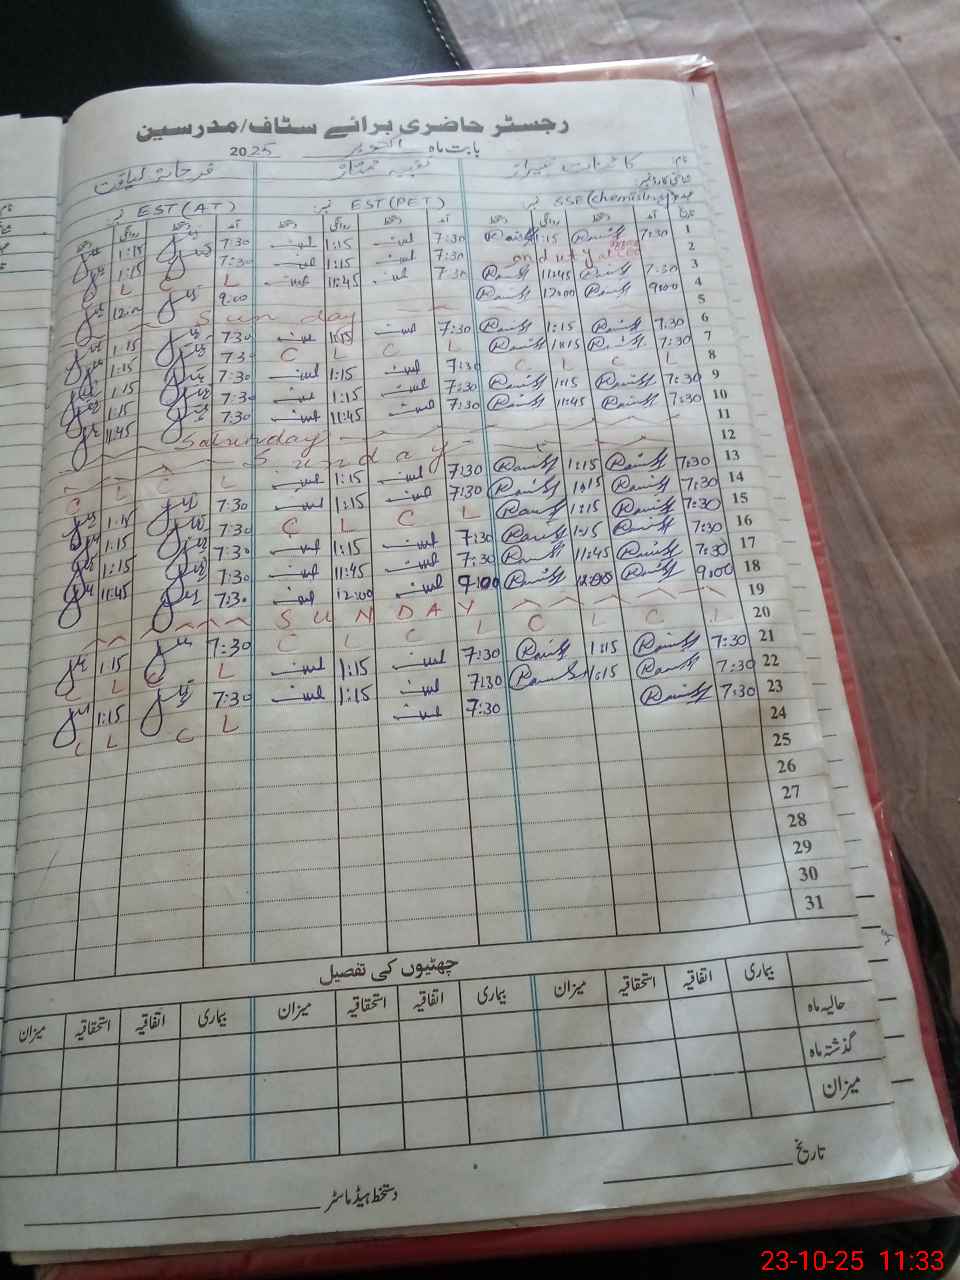 رجسٹر حاضری برائے سٹاف/مدرسین
بابت ماہ اکتوبر 2025
نام
EST(AT) نمبر EST(PET) نمبر SSE(chemistry)
تاریخ آمد دستخط روانگی دستخط آمد دستخط روانگی دستخط آمد دستخط روانگی دستخط
1 7:30 1:15 7:30 1:15 7:30 1:15
2 on duty 7:30 1:15 7:30 1:15
3 7:30 11:45 7:30 11:45 L C L C
4 9:00 12:00 9:00 12:00
5 Sunday
6 7:30 1:15 7:30 1:15 7:30 1:15
7 7:30 1:15 L C L C 7:30 1:15
8 L C L C 7:30 1:15 7:30 1:15
9 7:30 1:15 7:30 1:15 7:30 1:15
10 7:30 11:45 7:30 11:45 7:30 11:45
11 Saturday
12 Sunday
13 7:30 1:15 7:30 1:15 L C L C
14 7:30 1:15 7:30 1:15 7:30 1:15
15 7:30 1:15 L C L C 7:30 1:15
16 7:30 1:15 7:30 1:15 7:30 1:15
17 7:30 11:45 7:30 11:45 7:30 11:45
18 9:00 12:00 7:00 12:00 7:30
19 SUNDAY
20 L C L C L C L C 7:30 1:15
21 7:30 1:15 7:30 1:15 L C L C
22 7:30 1:15 7:30 1:15 7:30 1:15
23 7:30 7:30 L C L C
24
25
26
27
28
29
30
31
چھٹیوں کی تفصیل
بیماری اتفاقیہ استحقاقیہ میزان بیماری اتفاقیہ استحقاقیہ میزان بیماری اتفاقیہ استحقاقیہ میزان
حالیہ ماہ
گذشتہ ماہ
میزان
تاریخ
دستخط ہیڈ ماسٹر
23-10-25 11:33